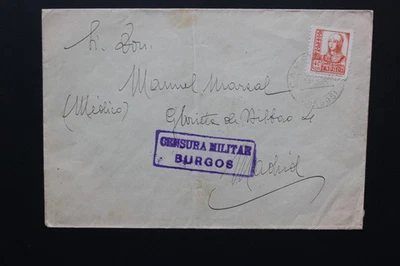 Sr. Don.
Manuel Marsal
(Médico)
Glorieta de Bilbao 4
CENSURA MILITAR
BURGOS
Madrid